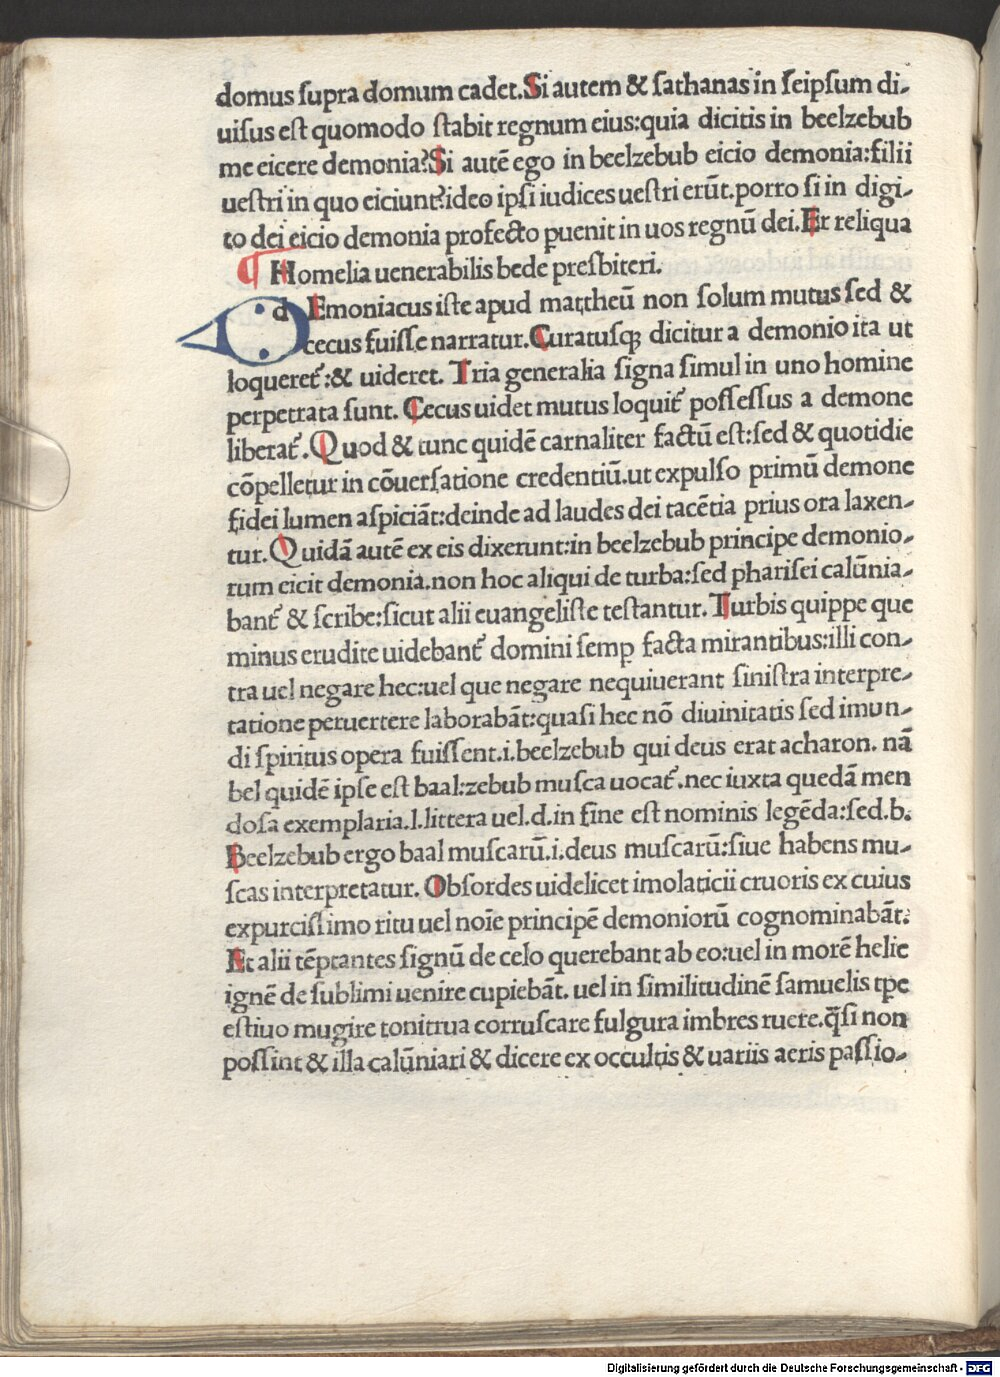 domus supra domum cadet.Si autem & sathanas in seipsum di-
uisus est quomodo stabit regnum eius:quia dicitis in beelzebub
me eicere demonia?Si autē ego in beelzebub eicio demonia:filii
uestri in quo eiciunt?ideo ipsi iudices uestri erūt.porro si in digi-
to dei eicio demonia profecto puenit in uos regnū dei.Et reliqua
¶ Homelia uenerabilis bede presbiteri.
dEmoniacus iste apud mattheū non solum mutus sed &
cecus fuisse narratur.Curatusqꝫ dicitur a demonio ita ut
loqueret᷑:& uideret. Tria generalia signa simul in uno homine
perpetrata sunt. Cecus uidet mutus loquit᷑ possessus a demone
liberat᷑.Quod & tunc quidē carnaliter factū est:sed & quotidie
cōpelletur in cōuersatione credentiū.ut expulso primū demone
fidei lumen aspiciāt:deinde ad laudes dei tacētia prius ora laxen-
tur.Quidā autē ex eis dixerunt:in beelzebub principe demonio-
rum eicit demonia.non hoc aliqui de turba:sed pharisei calūnia-
bant᷑ & scribe:sicut alii euangeliste testantur. Turbis quippe que
minus erudite uidebant᷑ domini semp facta mirantibus:illi con-
tra uel negare hec:uel que negare nequiuerant sinistra interpre-
tatione peruertere laborabāt:quasi hec nō diuinitatis sed imun-
di spiritus opera fuissent.i.beelzebub qui deus erat acharon. nā
bel quidē ipse est baal:zebub musca uocat᷑.nec iuxta quedā men
dosa exemplaria.l.littera uel.d.in fine est nominis legēda:sed.b.
Beelzebub ergo baal muscarū.i.deus muscarū:siue habens mu-
scas interpretatur. Obsordes uidelicet imolaticii cruoris ex cuius
expurcissimo ritu uel noīe principē demoniorū cognominabāt:
Et alii tēptantes signū de celo querebant ab eo:uel in morē helie
ignē de sublimi uenire cupiebāt. uel in similitudinē samuelis tpe
estiuo mugire tonitrua corruscare fulgura imbres ruere.q̄si non
possint & illa calūniari & dicere ex occultis & uariis aeris passio-
Digitalisierung gefördert durch die Deutsche Forschungsgemeinschaft - DFG